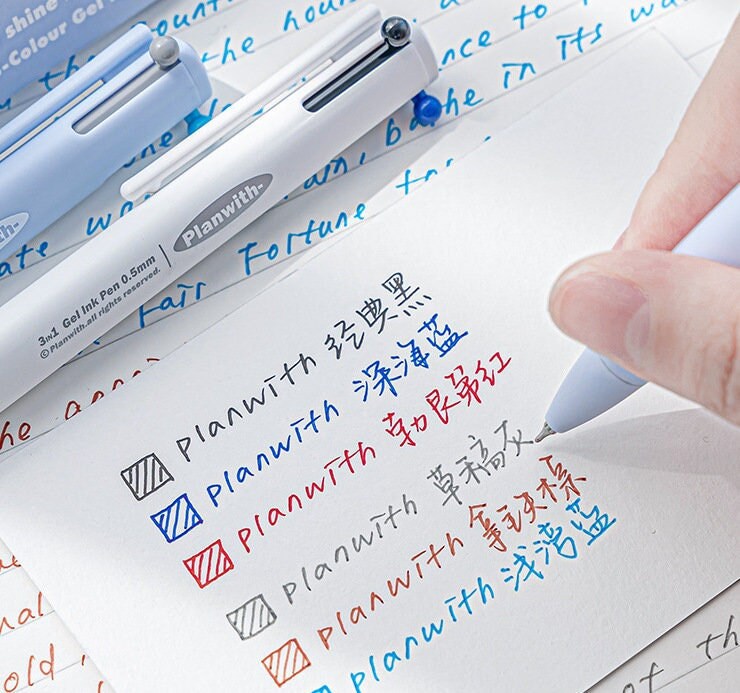 shine
-Colour Gel
the hou
nce to
bathe in its wa
ate wa
Fair Fortune
Planwith-
th-
3IN1 Gel Ink Pen 0.5mm
© Planwith.all rights reserved.
he
planwith 经典黑
planwith 深海蓝
planwith 勃艮第红
planwith 草稿灰
planwith 拿铁棕
planwith 浅湾蓝
nal
old,
of th